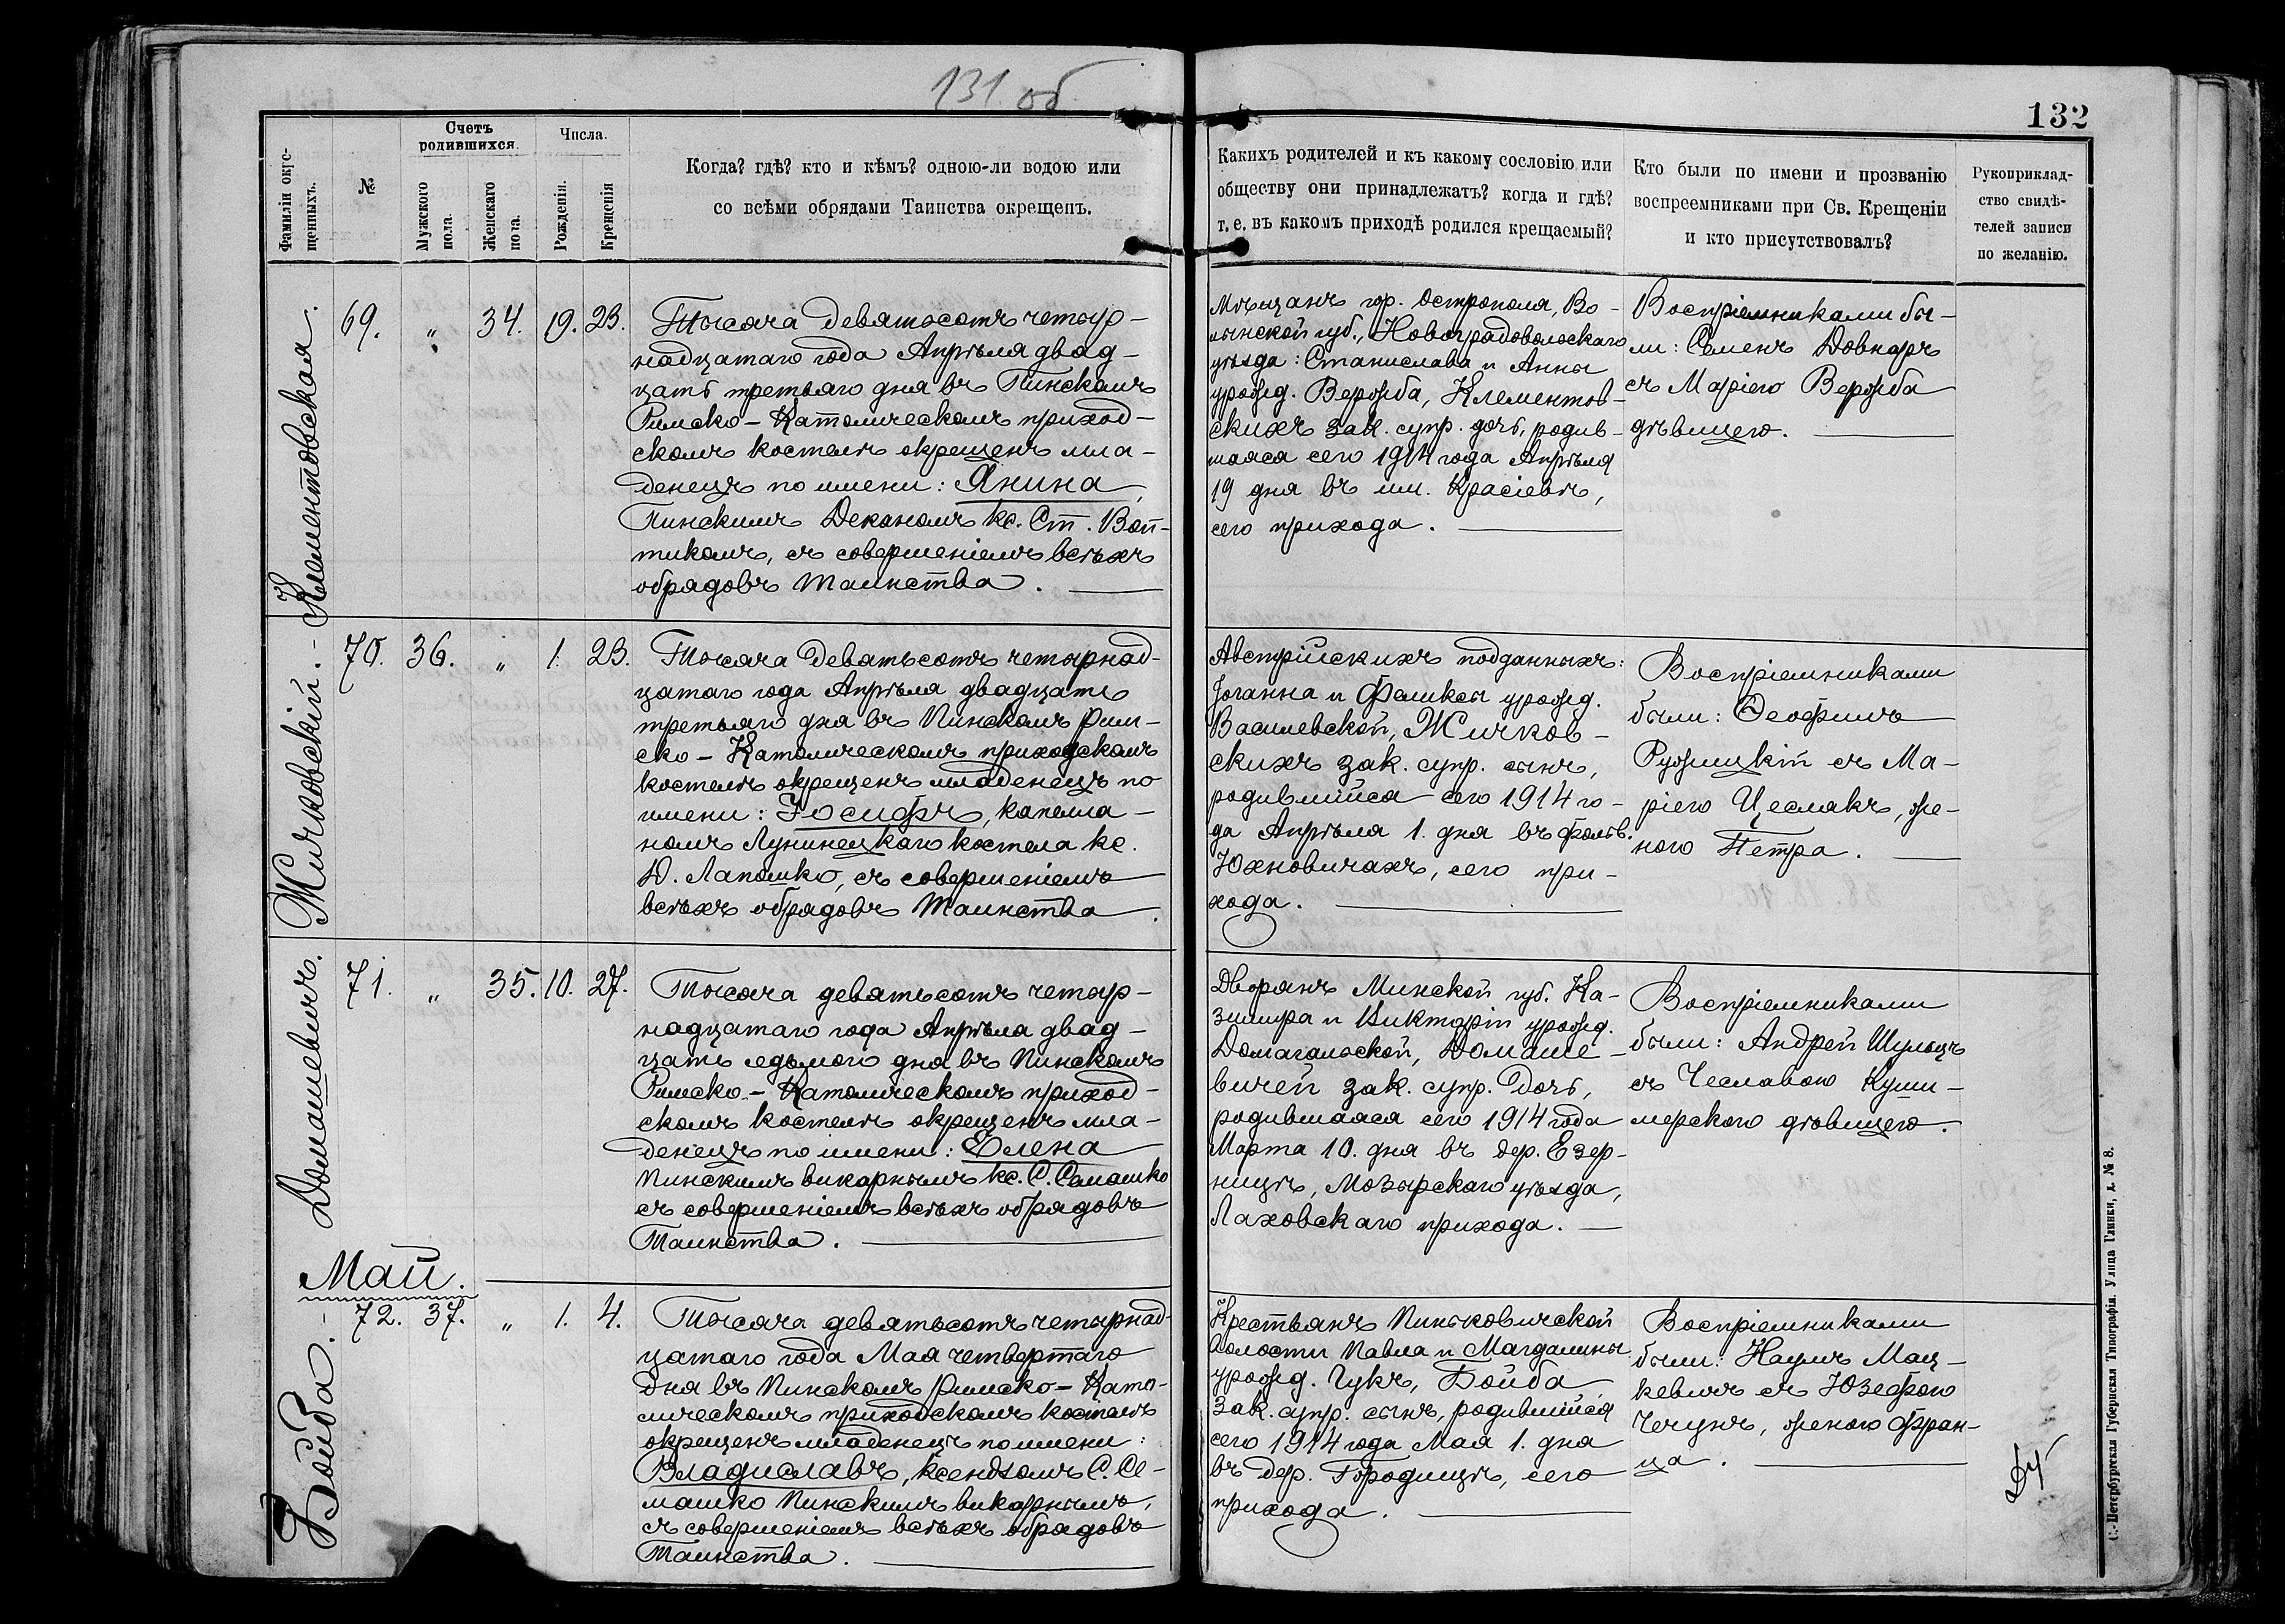 131 об
132
Фамиліи окре-
щенныхъ.
№
Счетъ
родившихся.
Мужского
пола.
Женскаго
пола.
Числа.
Рожденія.
Крещенія
Когда? гдѣ? кто и кѣмъ? одною-ли водою или
со всѣми обрядами Таинства окрещенъ.
Какихъ родителей и къ какому сословію или
обществу они принадлежатъ? когда и гдѣ?
т. е. въ какомъ приходѣ родился крещаемый?
Кто были по имени и прозванію
воспреемниками при Св. Крещеніи
и кто присутствовалъ?
Рукоприклад-
ство свидѣ-
телей записи
по желанію.
Клементовская.
69. " 34. 19. 23.
Тысяча девятьсотъ четыр-
надцатаго года Апрѣля двад-
цать третьяго дня въ Пинскомъ
Римско-Католическомъ приход-
скомъ костелѣ окрещенъ мла-
денецъ по имени: Янина,
Пинскимъ Деканомъ кс. Ст. Вой-
тикомъ, съ совершеніемъ всѣхъ
обрядовъ Таинства.
Мѣщанъ гор. Острополя, Во-
лынской губ., Новоградоволоскаго
уѣзда: Станислава и Анны
урожд. Вержба, Клементов-
скихъ зак. супр. дочь, родив-
шаяся сего 1914 года Апрѣля
19 дня въ им. Красіевѣ,
сего прихода.
Воспріемниками бы-
ли: Семенъ Довнаръ
съ Маріею Вержба
дѣвицею.
Жичковскій.
70. 36. " 1. 23.
Тысяча девятьсотъ четырнад-
цатаго года Апрѣля двадцать
третьяго дня въ Пинскомъ Рим-
ско-Католическомъ приходскомъ
костелѣ окрещенъ младенецъ по
имени: Іосифъ, капелла-
номъ Лунинецкаго костела кс.
Д. Лапошко, съ совершеніемъ
всѣхъ обрядовъ Таинства.
Австрійскихъ подданныхъ:
Іоганна и Феликсы урожд.
Василевской, Жичков-
скихъ зак. супр. сынъ,
родившійся сего 1914 го-
да Апрѣля 1. дня въ фольв.
Юхновичахъ, сего при-
хода.
Воспріемниками
были: Ѳеофилъ
Ружицкій съ Ма-
ріею Цеслакъ, же-
ною Петра.
Домашевичъ.
71. " 35. 10. 27.
Тысяча девятьсотъ четыр-
надцатаго года Апрѣля двад-
цать седьмого дня въ Пинскомъ
Римско-Католическомъ приход-
скомъ костелѣ окрещенъ мла-
денецъ по имени: Елена
Пинскимъ викарнымъ кс. С. Семашко
съ совершеніемъ всѣхъ обрядовъ
Таинства.
Дворянъ Минской губ. Ка-
зимира и Викторіи урожд.
Домагальской, Домаше-
вичей зак. супр. дочь,
родившаяся сего 1914 года
Марта 10. дня въ дер. Езер-
ницѣ, Мозырскаго уѣзда,
Лаховскаго прихода.
Воспріемниками
были: Андрей Шульцъ
съ Чеславою Куши-
мерскою дѣвицею.
Май.
Бойба.
72. 37. " 1. 4.
Тысяча девятьсотъ четырнад-
цатаго года Мая четвертаго
дня въ Пинскомъ Римско-Като-
лическомъ приходскомъ костелѣ
окрещенъ младенецъ по имени:
Владиславъ, ксендзомъ С. Се-
машко Пинскимъ викарнымъ,
съ совершеніемъ всѣхъ обрядовъ
Таинства.
Крестьянъ Пиньковичской
волости Павла и Магдалины
урожд. Чукъ, Бойба
зак. супр. сынъ, родившійся
сего 1914 года Мая 1. дня
въ дер. Городищѣ, сего
прихода.
Воспріемниками
были: Наумъ Мац-
кевичъ съ Юзефою
Чечунъ, женою Фран-
ца.
С.-Петербургская Губернская Типографія. Улица Глинки, д. № 8.